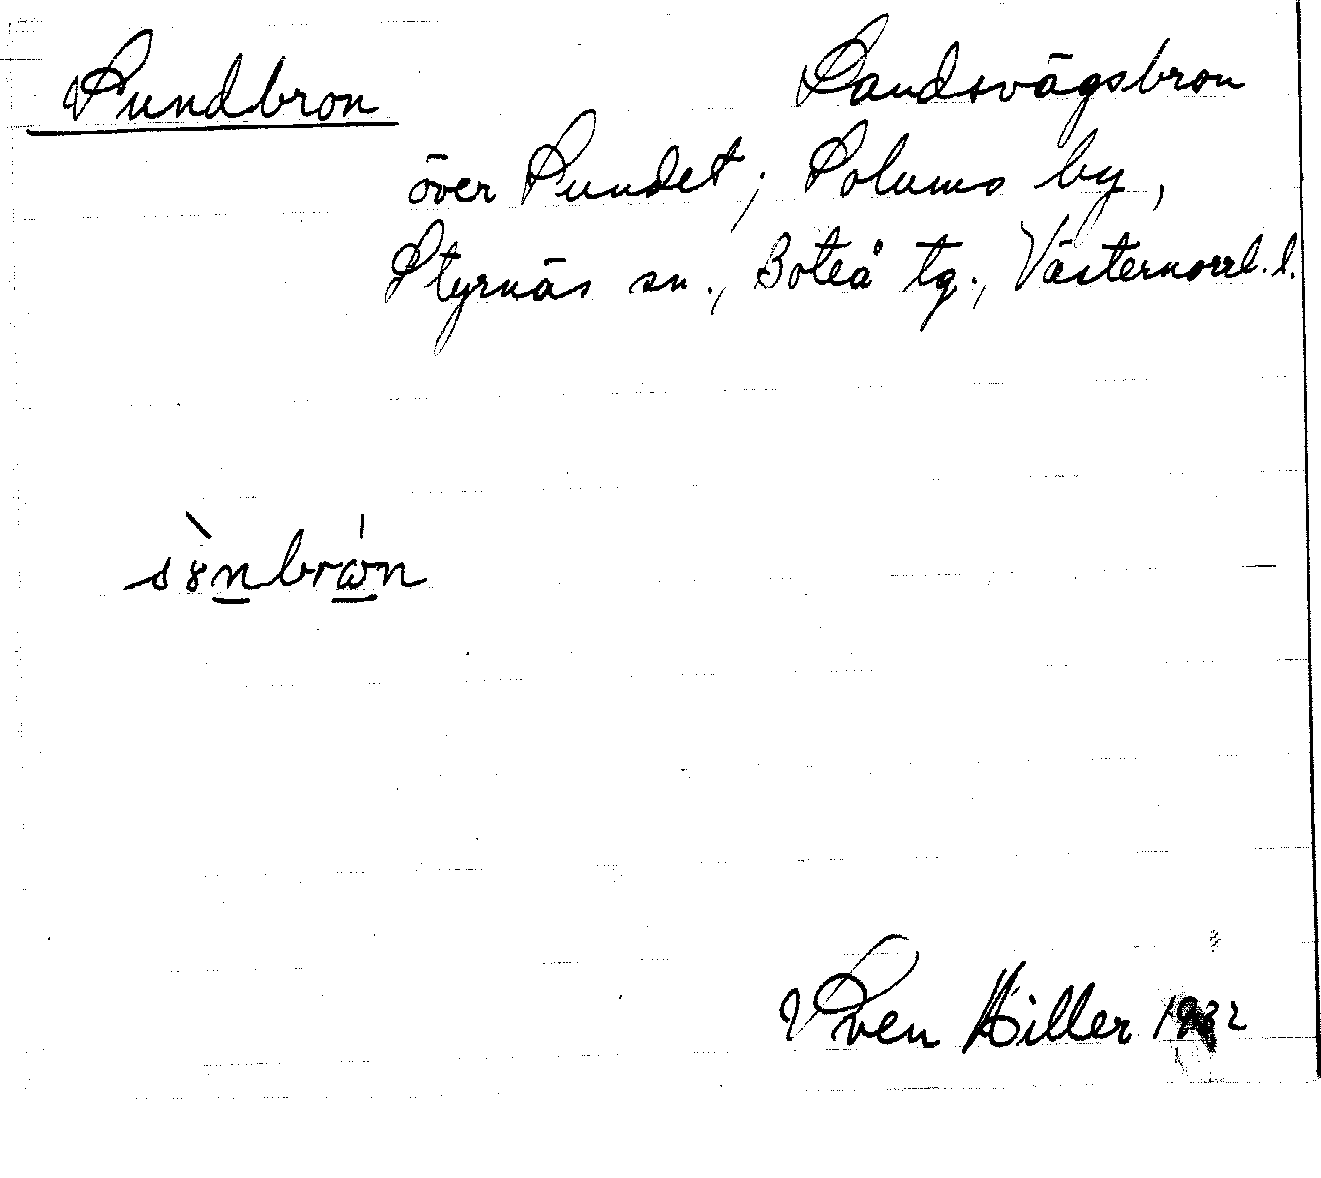 Sundbron Landsvägsbron
över Sundet; Solums by,
Styrnäs sn., Boteå tg., Västernorrl. l.
sɤ̀nbrɷ́n
Sven Hiller 1932